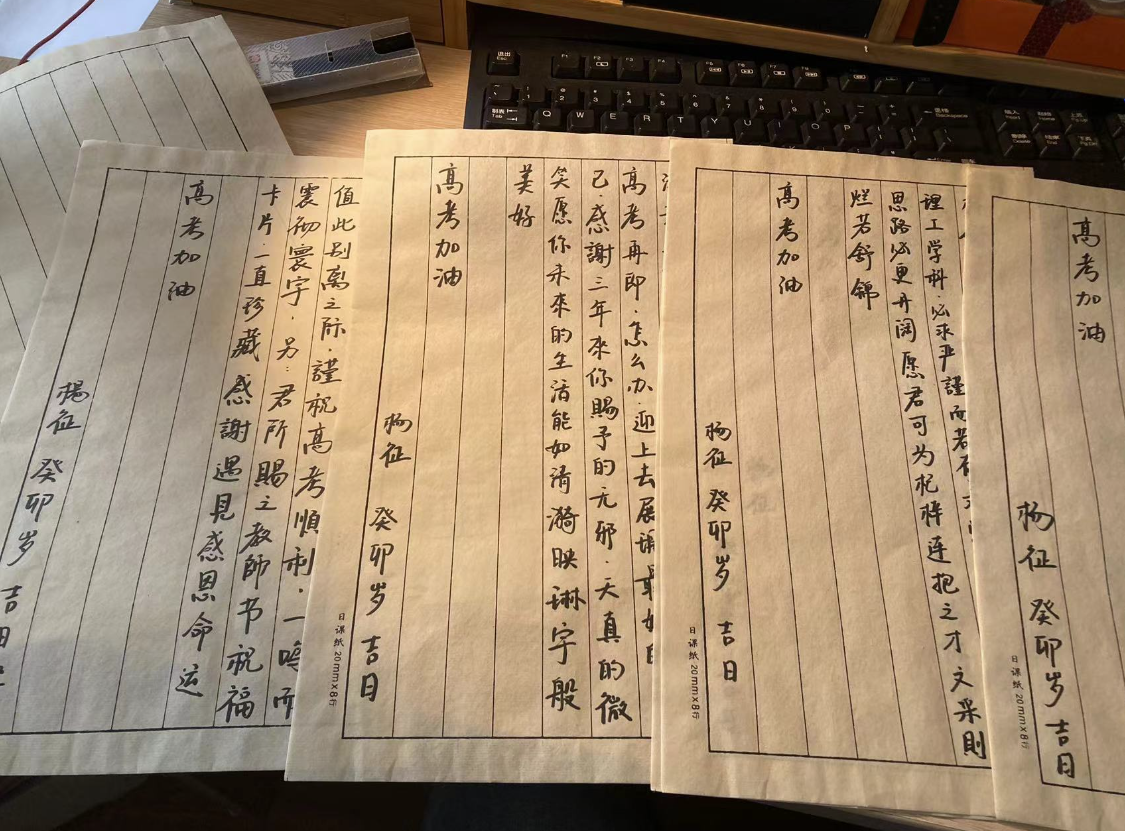 值此别离之际·謹祝高考順利·一鳴而
震彻寰宇·另:君所賜之教師节祝福
卡片·一直珍藏 感謝遇見感恩命运
高考加油
楊征 癸卯岁 吉日
高考再即·怎么办·迎上去展
己·感謝三年來你賜予的无邪·天真的微
笑愿你未來的生活能如清漪映琳宇般
美好
高考加油
杨征 癸卯岁 吉日
日课纸 20mm×8行
理工学科·必求严謹而若
思路必更开阔 愿君可为杞梓连抱之才 文采則
烂若舒錦
高考加油
杨征 癸卯岁 吉日
日课纸 20mm×8行
高考加油
杨征 癸卯岁 吉日
日课纸 20mm×8行
Q W E R T Y U I O P
Backspace
Tab
Esc
F1 F2 F3 F4